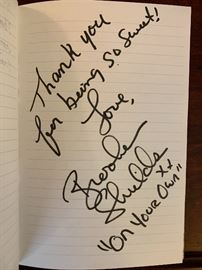 Thank you
for being so sweet!
Love,
Brooke
Shields
xx
"On Your Own"